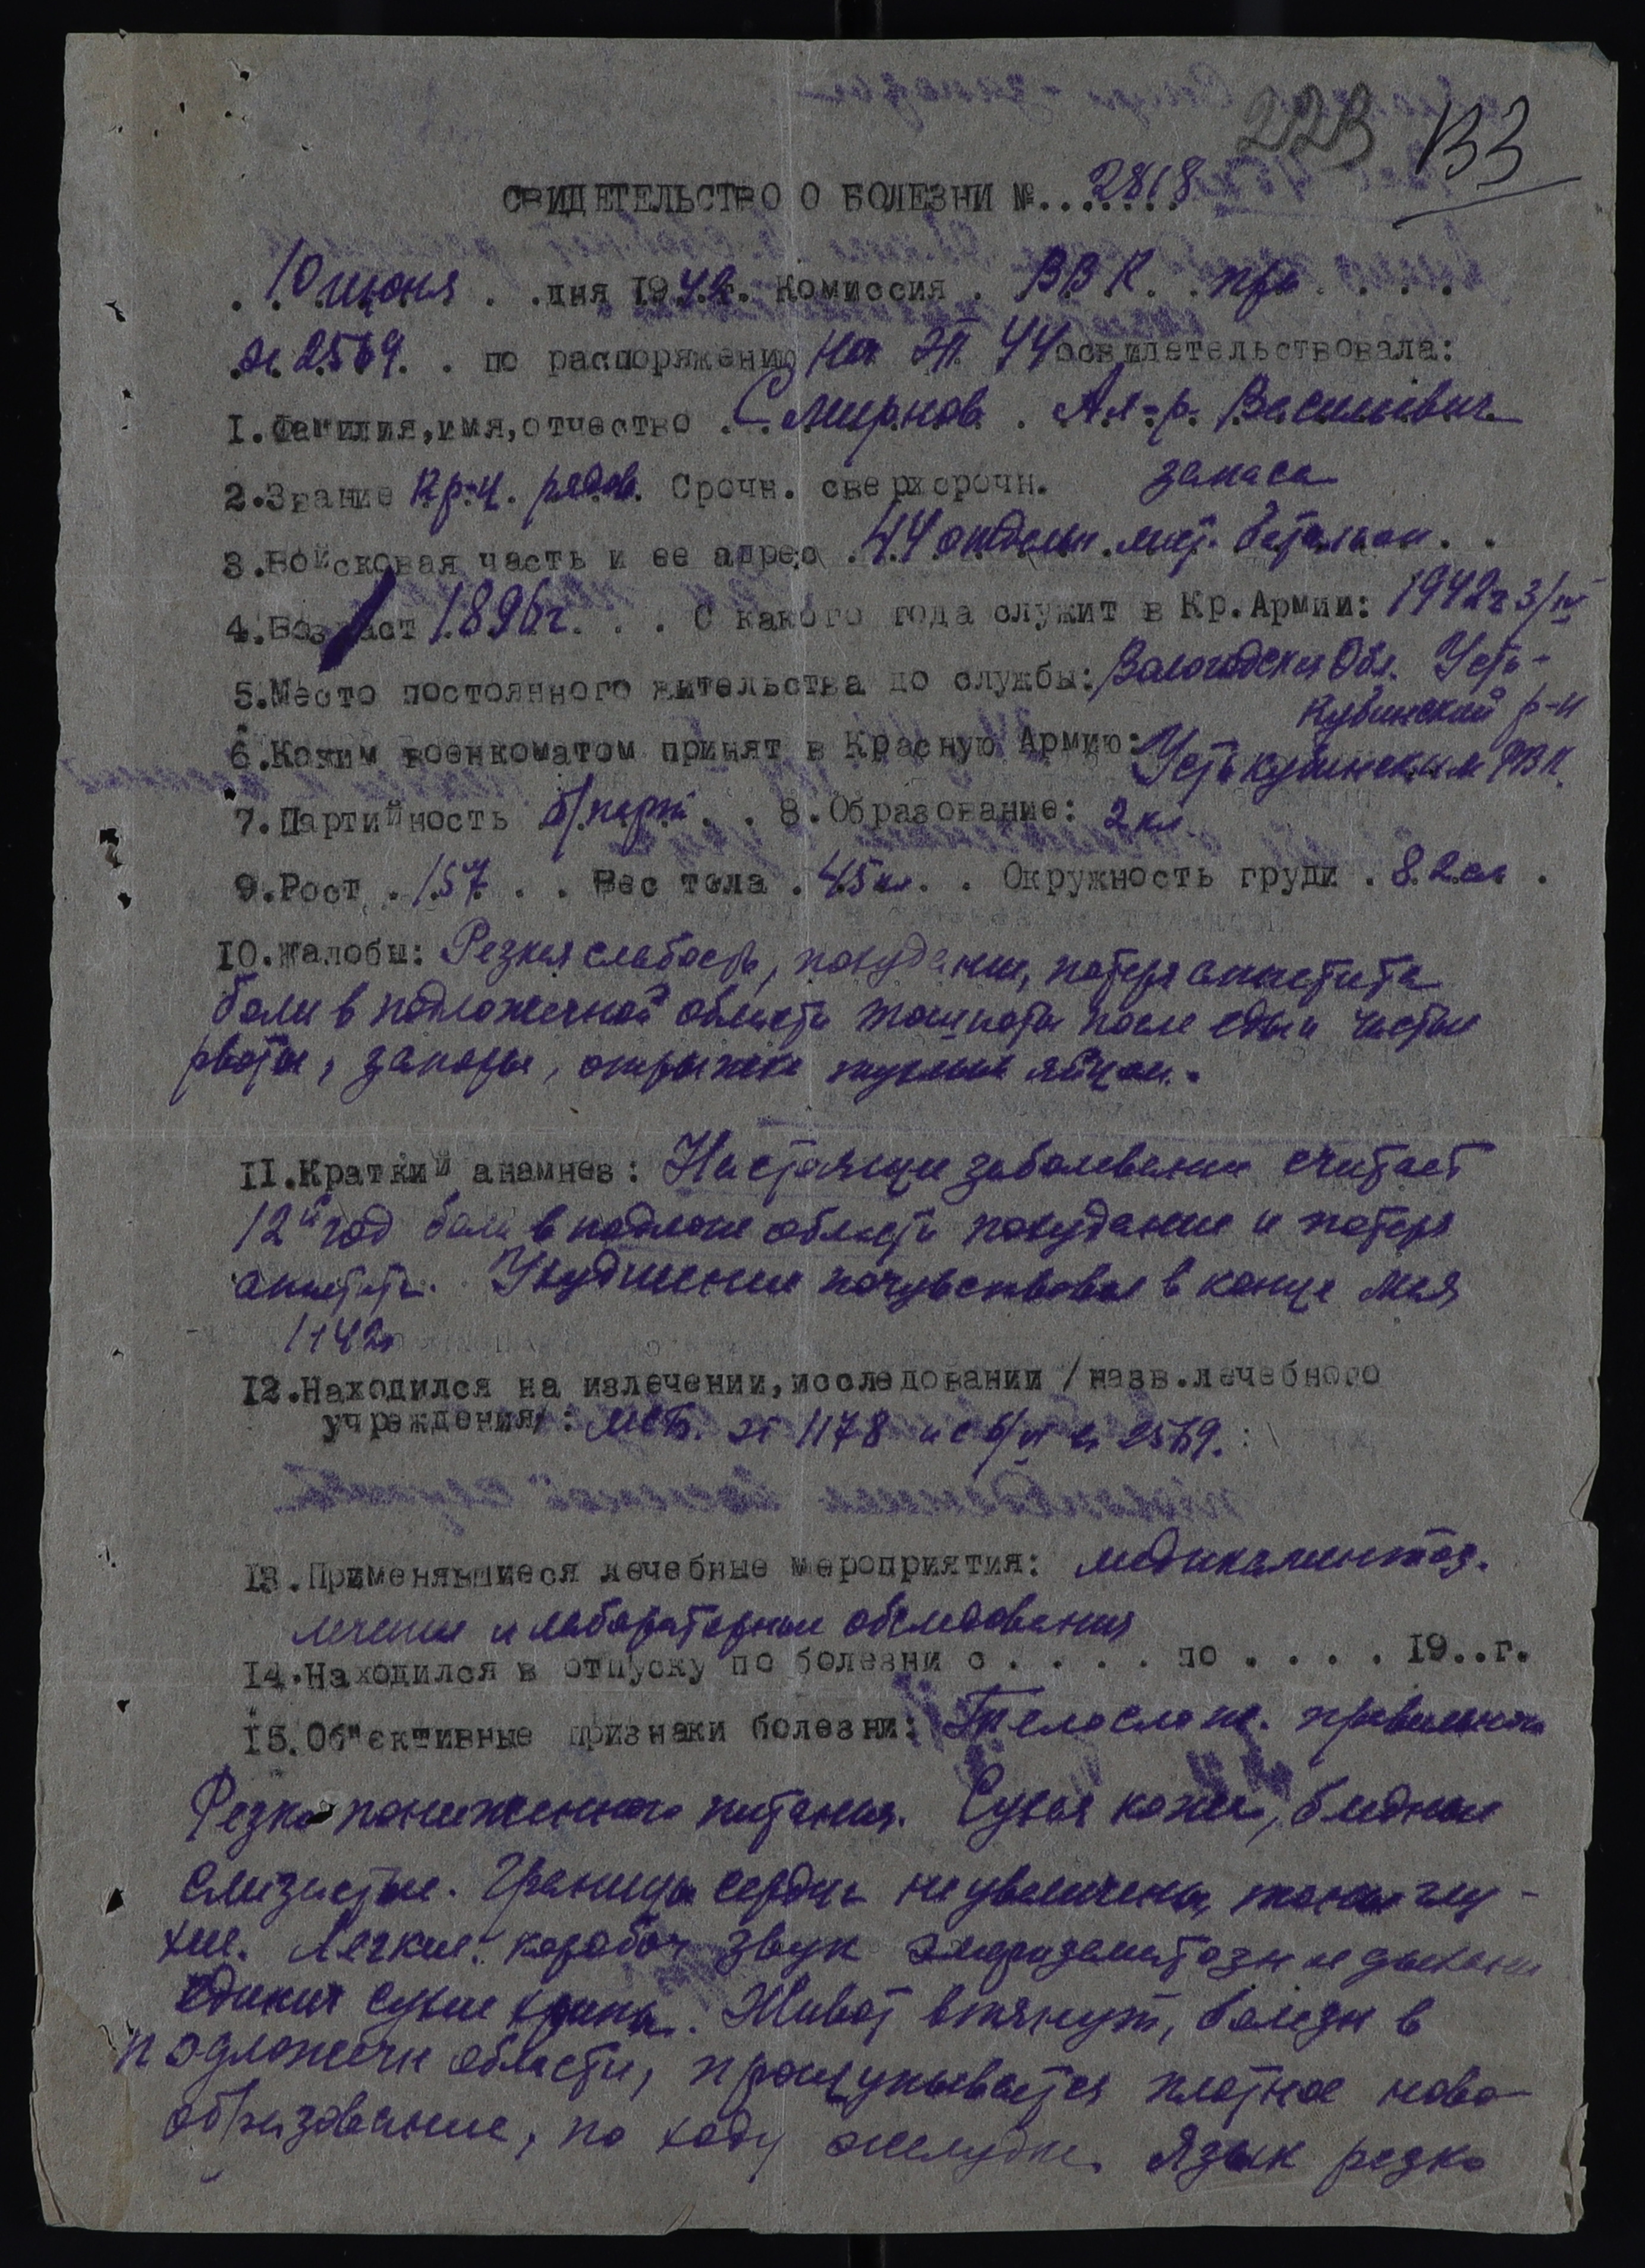 223 133
СВИДЕТЕЛЬСТВО О БОЛЕЗНИ №.2818
10 июня . .дня 1942г. Комиссия . ВВК. при . . . .
2569. . по распоряжению Нач ЭП 44 освидетельствовала:
1.Фамилия,имя,отчество . Смирнов . Ал-р. Васильевич
2.Звание кр-ц. рядов. Срочн. сверхсрочн. запаса
3.Войсковая часть и ее адрес . 44 отдельн. батальон . .
4.Возраст 1896г. . . С какого года служит в Кр.Армии: 1942г 3/IV
5.Место постоянного жительства до службы: Вологодская Обл. Усть-
Кубинский р-н
6.Каким военкоматом принят в Красную Армию: Усть кубинским РВК.
7.Партийность б/парт. . . 8.Образование: 2 кл.
9.Рост . 157 . . Вес тела . 45 кл. . Окружность груди . 82 см .
10.Жалобы: Резкая слабость, похудание, потеря аппетита
боли в подложечной области тошноты после еды и частые
рвоты, запоры, отрыжка тухлым яйцом.
11.Краткий анамнез: Настоящие заболевание считает
12й год боли в подлож области похудание и потеря
аппетита. Ухудшение почувствовал в конце мая
1942г
12.Находился на излечении,исследовании /назв.лечебного
учреждения/: МСБ. 1178 и с 6/VI 2569.
13.Применявшиеся лечебные мероприятия: медикаментоз.
лечение и лабораторные обследования
14.Находился в отпуску по болезни с . . . . по . . . . 19..г.
15.Об"ективные признаки болезни: Телослож. правильного
Резко пониженного питания. Сухая кожа, бледные
слизистые. Границы сердца не увеличены, тоны глу-
хие. Легкие: коробоч звук эмфизематозн дыхание
единич сухие хрипы. Живот втянут, болезн в
подложечн области, прощупывается плотное ново-
образование, по ходу желудка. Язык резко